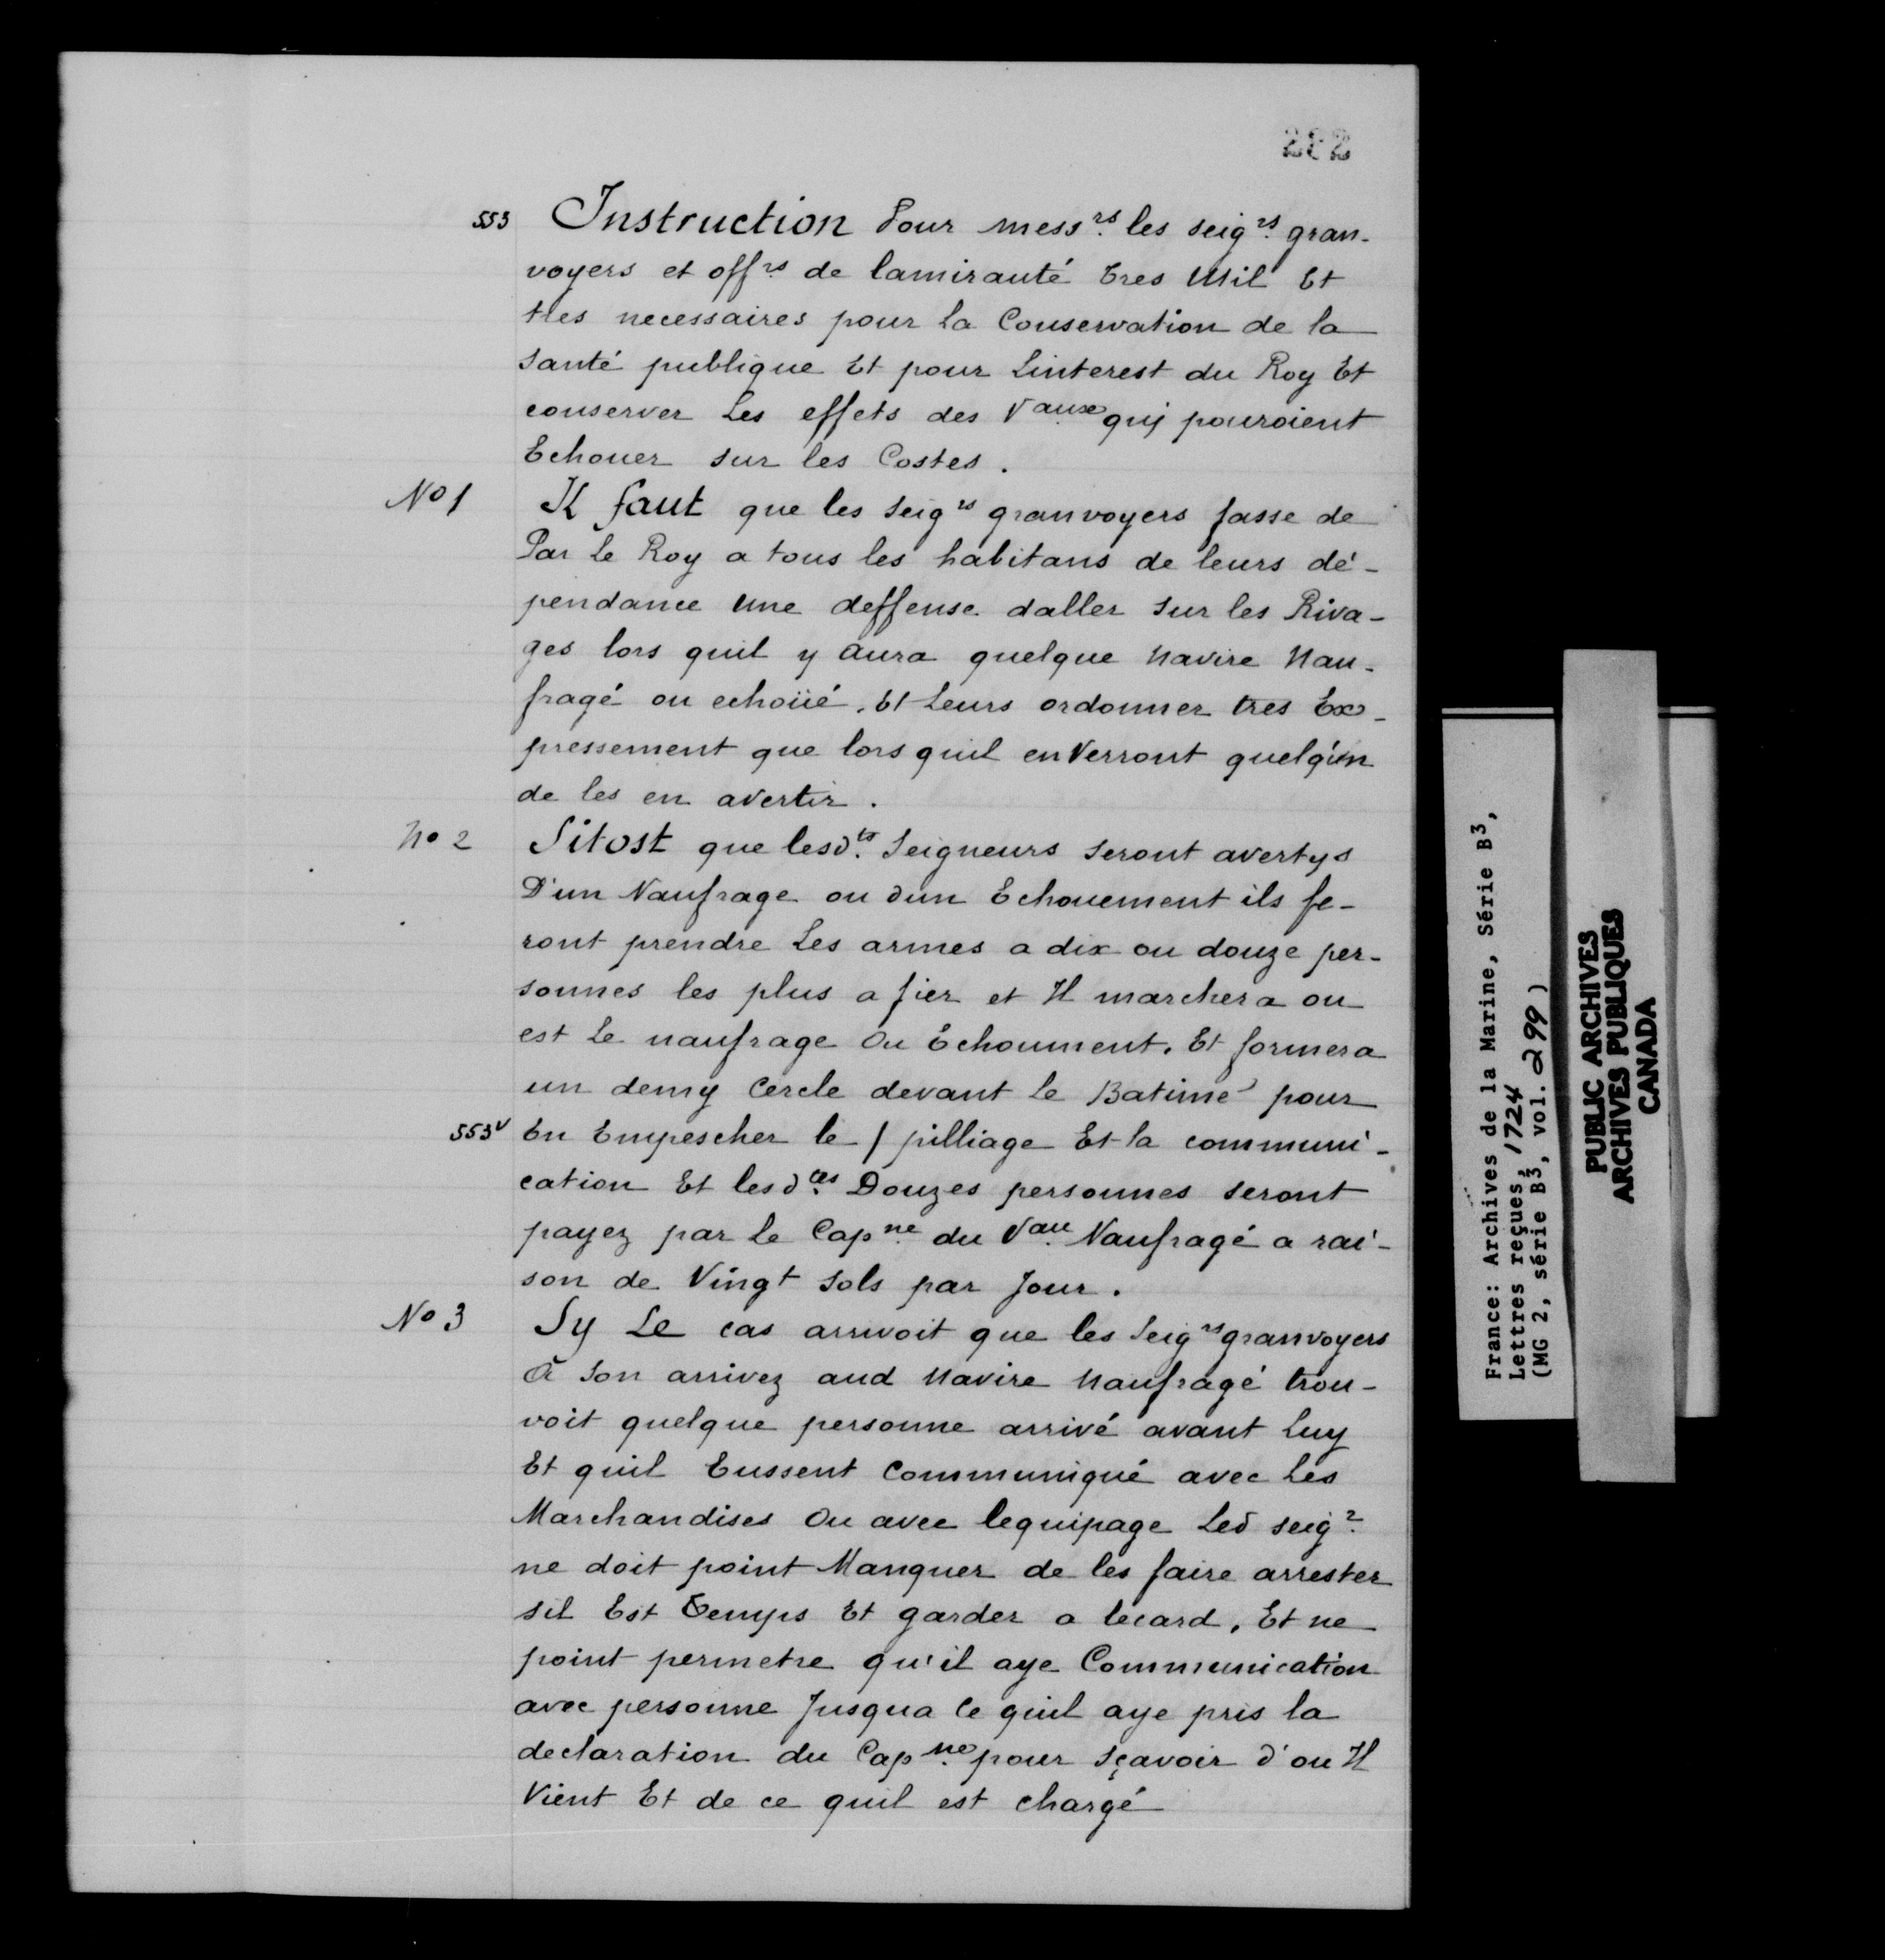 202
553 Instruction Pour mess.rs les seig.rs gran-
voyers et off.rs de lamirauté tres Util Et
tres necessaires pour la Conservation de la
santé publique Et pour Linterest du Roy Et
conserver Les effets des V.aux quj pouroient
Echouer sur les Costes.
No 1 Il faut que les Seig.rs granvoyers fasse de
Par le Roy a tous les habitans de leurs dé-
pendance une deffense daller sur les Riva-
ges lors quil y aura quelque Navire Nau-
fragé ou echoüé, Et Leurs ordonner tres Ex-
pressement que lors quil en Verront quelq'un
de les en avertir.
No 2 Sitost que lesd.ts Seigneurs seront avertys
D'un Naufrage ou dun Echouement ils fe-
ront prendre Les armes a dix ou douze per-
sonnes les plus a fier et Il marchera ou
est Le naufrage Ou Echoument. Et formera
un demy Cercle devant le Batimé pour
553v En Empescher le / pilliage Et la communi-
cation Et lesd.tes Douzes personnes seront
payez par le Cap.ne du V.au Naufragé a rai-
son de Vingt sols par Jour.
No 3 Sy Le cas arrivoit que les Seig.rs granvoyers
A son arrivez aud Navire Naufragé trou-
voit quelque personne arrivé avant Luy
Et quil Eussent Communiqué avec Les
Marchandises Ou avec lequipage Led seig.r
ne doit point Manquer de les faire arrester
sil Est Temps Et garder a lecard, Et ne
point permetre qu'il aye Communication
avec personne Jusqua Ce quil aye pris la
declaration du Cap.ne pour sçavoir d'ou Il
Vient Et de ce quil est chargé
France: Archives de la Marine, Série B3,
Lettres reçues, 1724
(MG 2, série B3, vol. 299)
PUBLIC ARCHIVES
ARCHIVES PUBLIQUES
CANADA